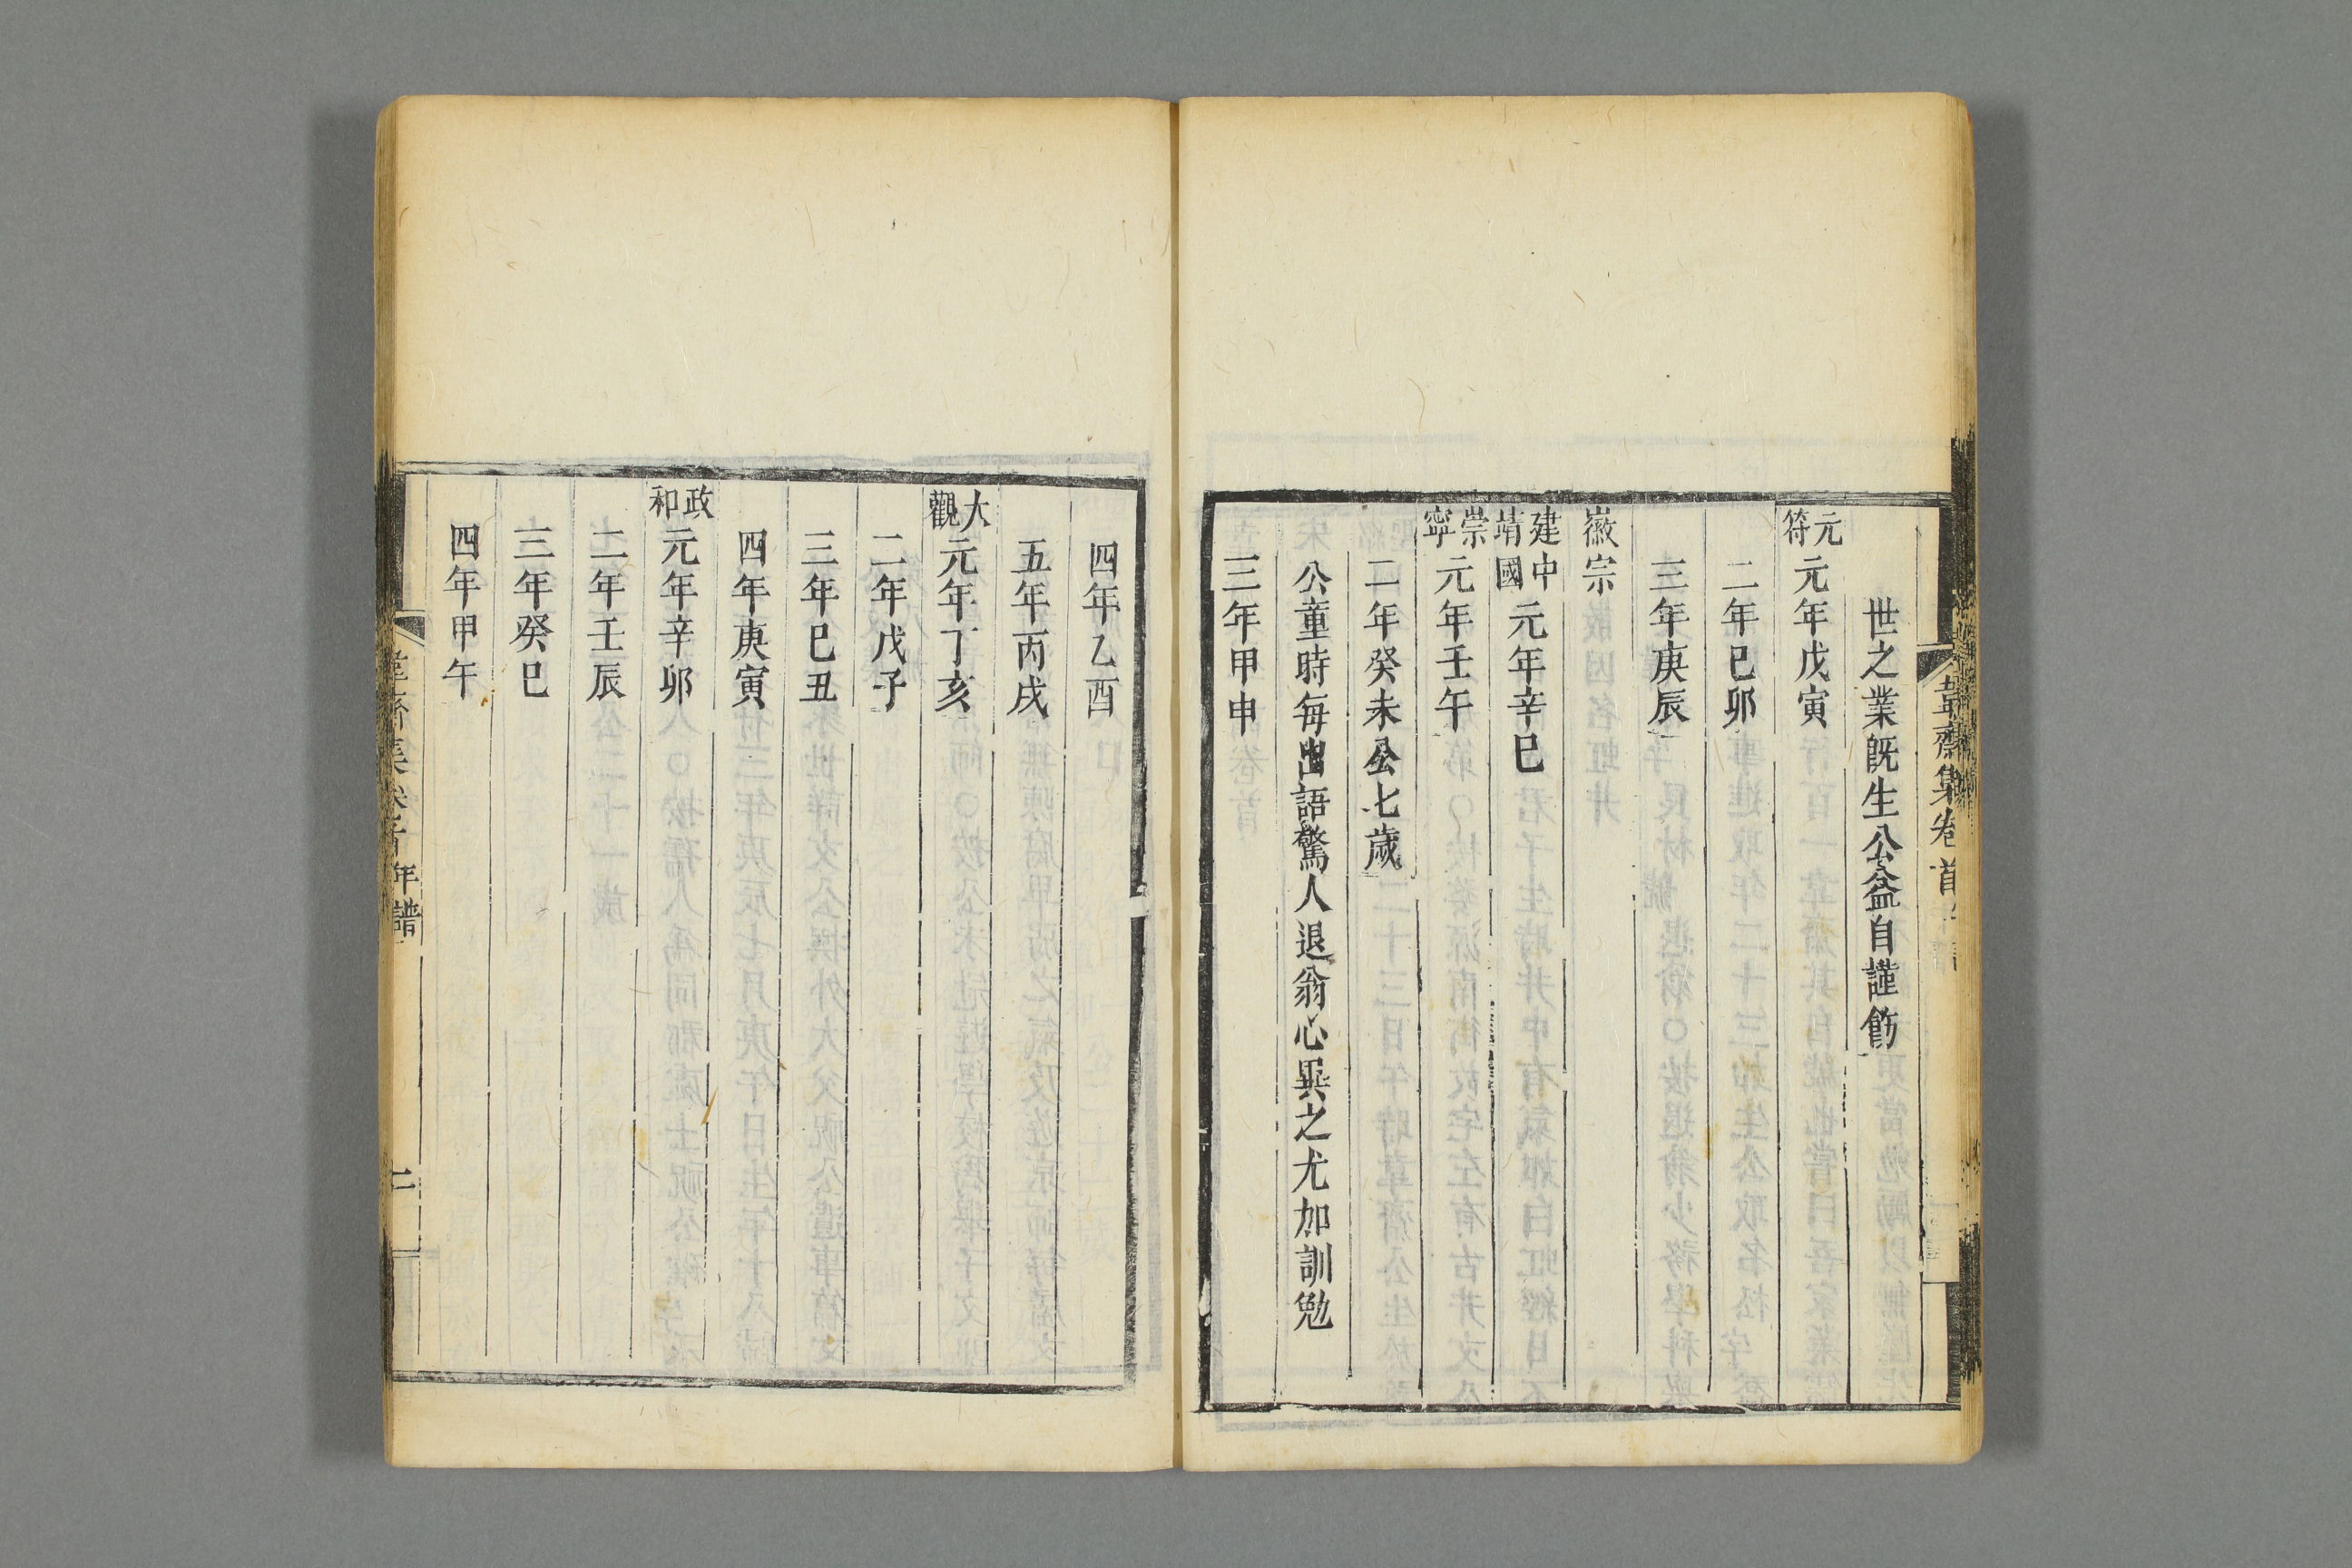 韋齋集卷首
世之業既生公益自謹飭
元符元年戊寅
二年己卯
三年庚辰
徽宗
建中靖國元年辛巳
崇寧元年壬午
二年癸未公七歲
公童時每出語驚人退翁心異之尤加訓勉
三年甲申
四年乙酉
五年丙戌
大觀元年丁亥
二年戊子
三年己丑
四年庚寅
政和元年辛卯
二年壬辰
三年癸巳
四年甲午
韋齋集卷首年譜 二